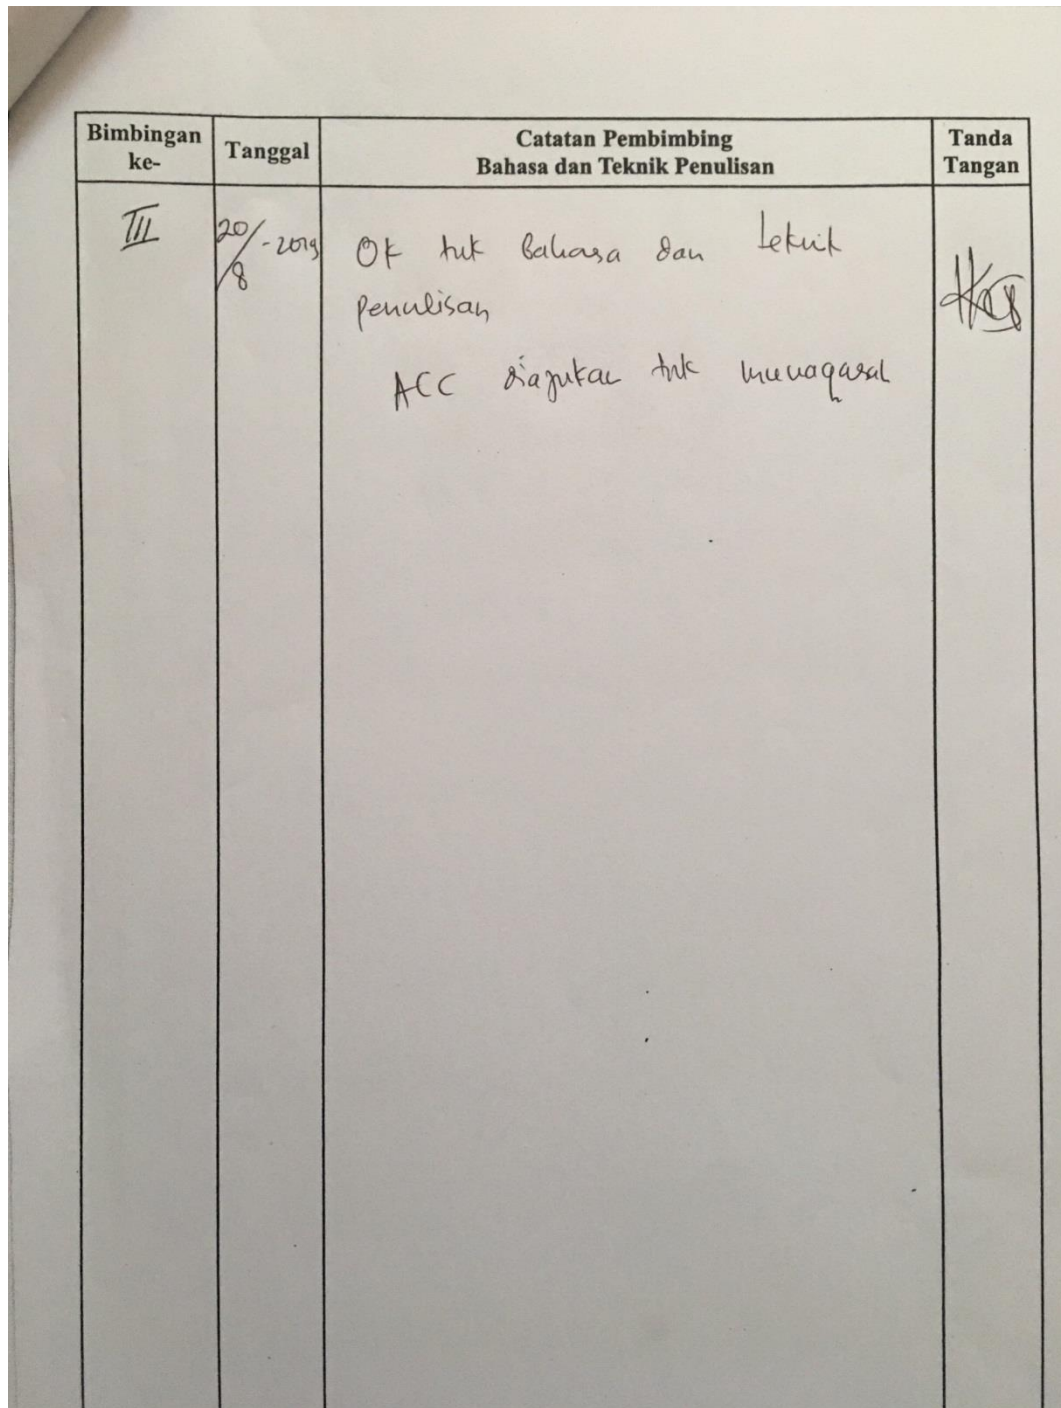 Bimbingan ke-
Tanggal
Catatan Pembimbing
Bahasa dan Teknik Penulisan
Tanda Tangan
III
20/8-2019
Ok tuk Bahasa dan teknik
penulisan
ACC diajukan tuk munaqasah